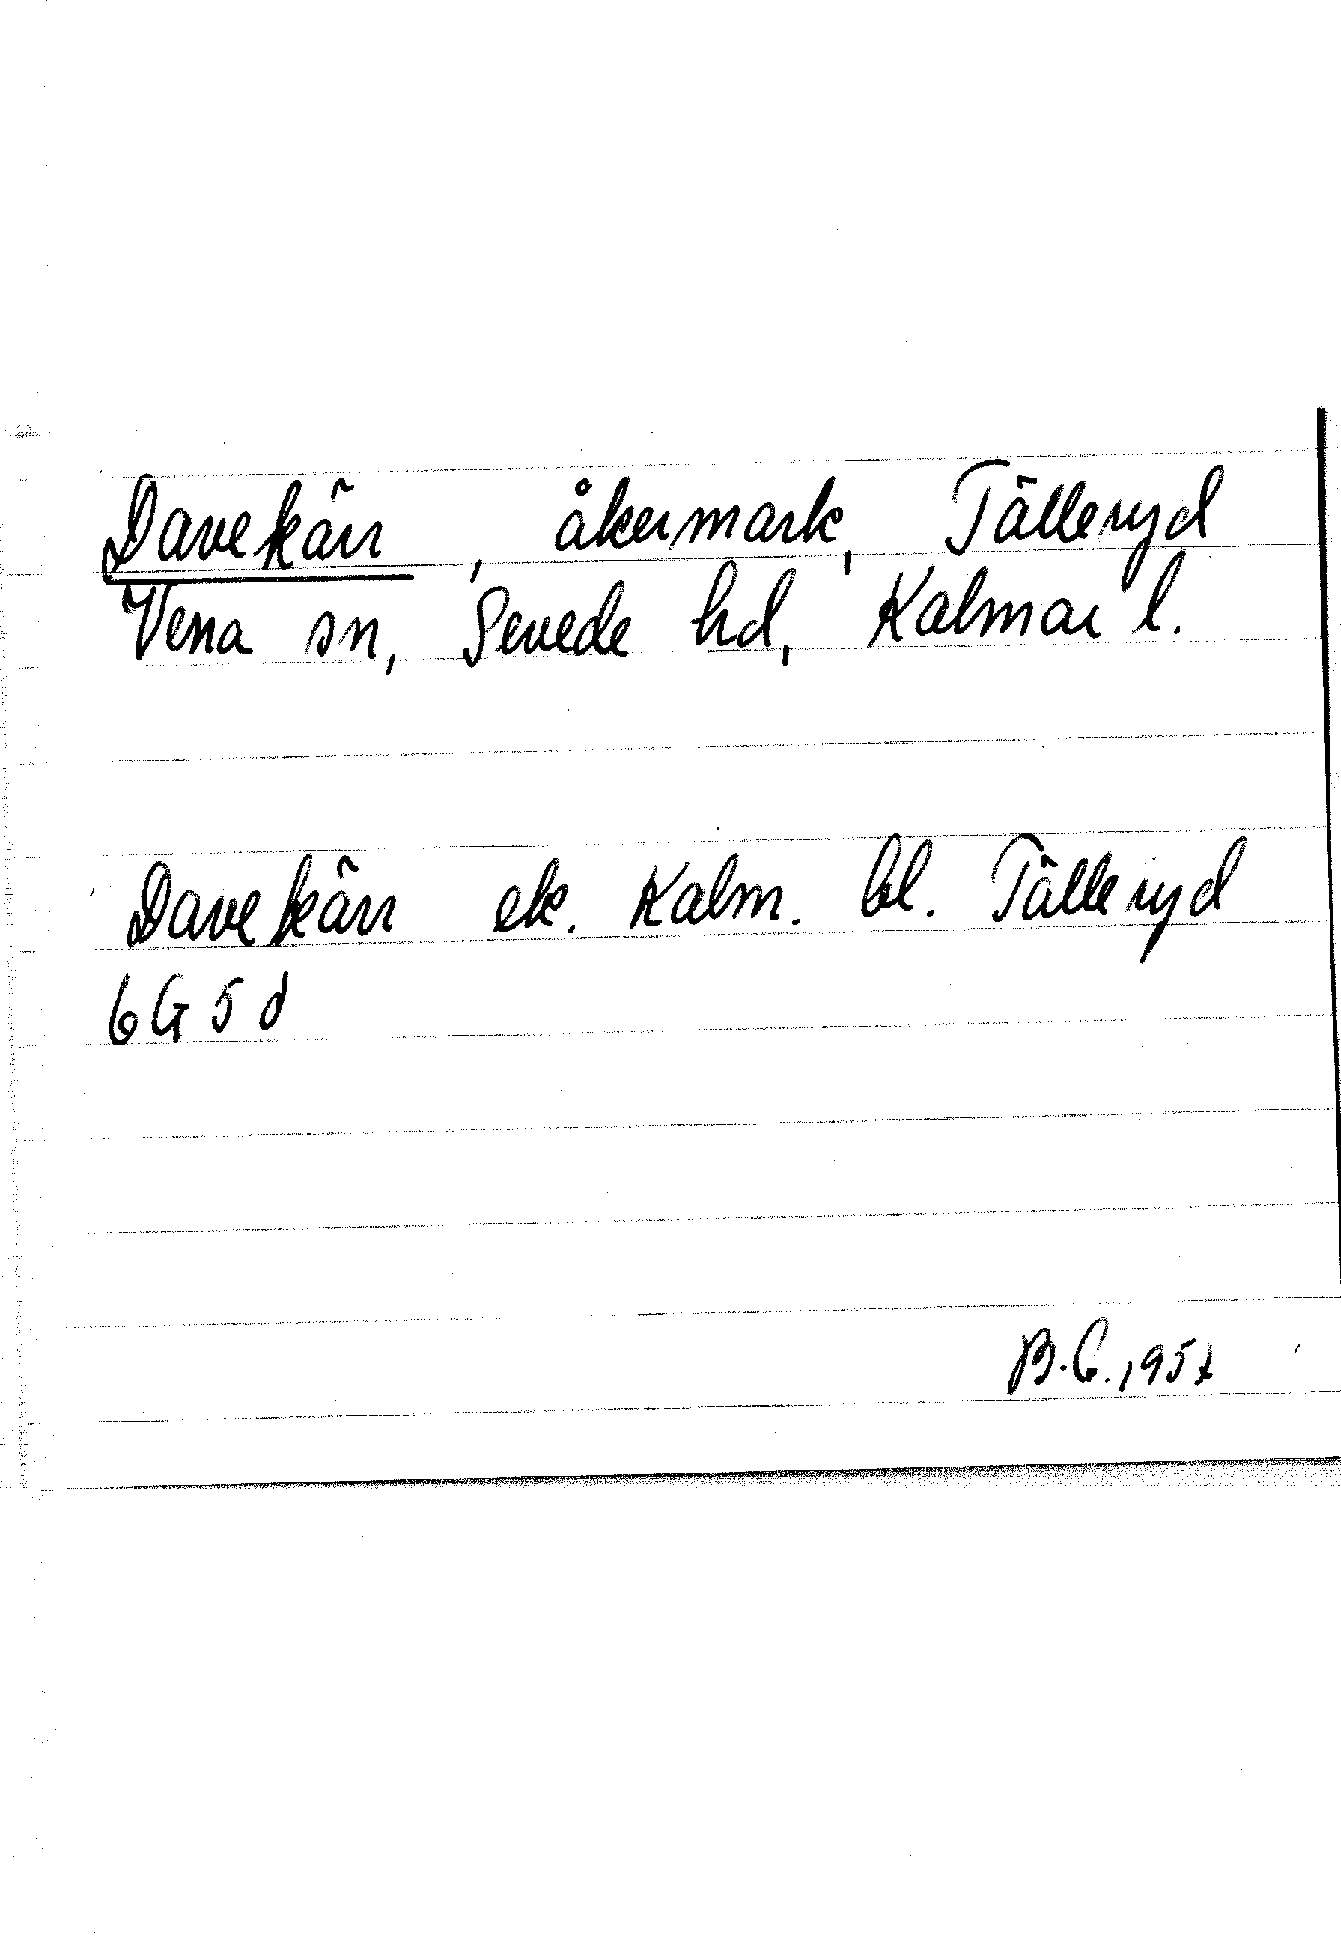 Davekärr, åkermark, Tälleryd
Vena sn, Sevede hd, Kalmar l.
Davekärr ek. Kalm. bl. Tälleryd
6G5d
B.G.